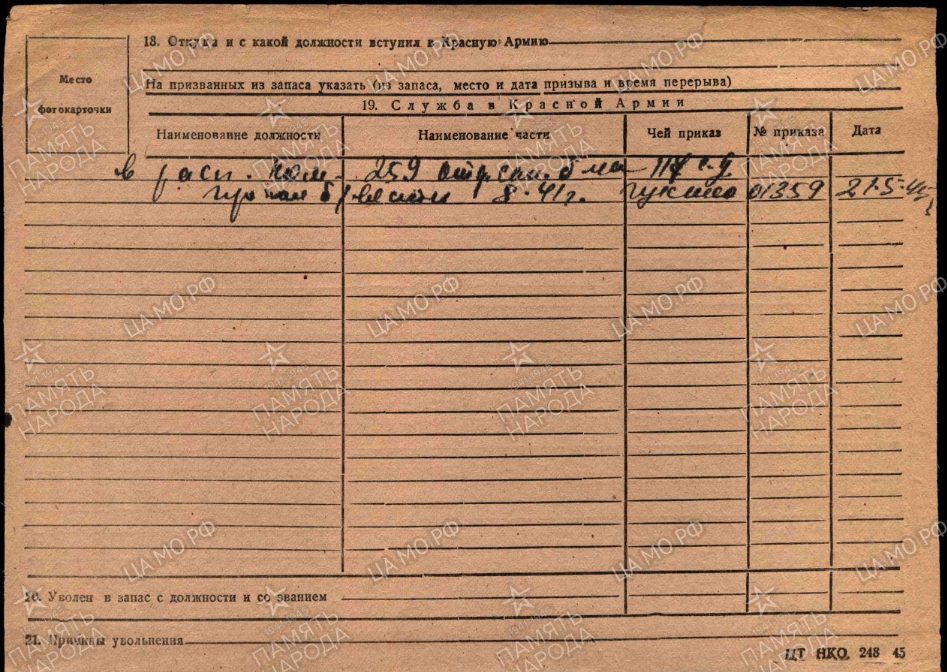 18. Откуда и с какой должности вступил в Красную Армию
Место
фотокарточки
На призванных из запаса указать (из запаса, место и дата призыва и время перерыва)
19. Служба в Красной Армии
Наименование должности Наименование части Чей приказ № приказа Дата
в расп. ком. 259 отд. сан. б-на с.д
пропал б/вести 8-41г. гукнка 01359 21.5.45
20. Уволен в запас с должности и со званием
21. Причины увольнения
ЦТ НКО. 248 45
ЦА МО РФ
ПАМЯТЬ НАРОДА